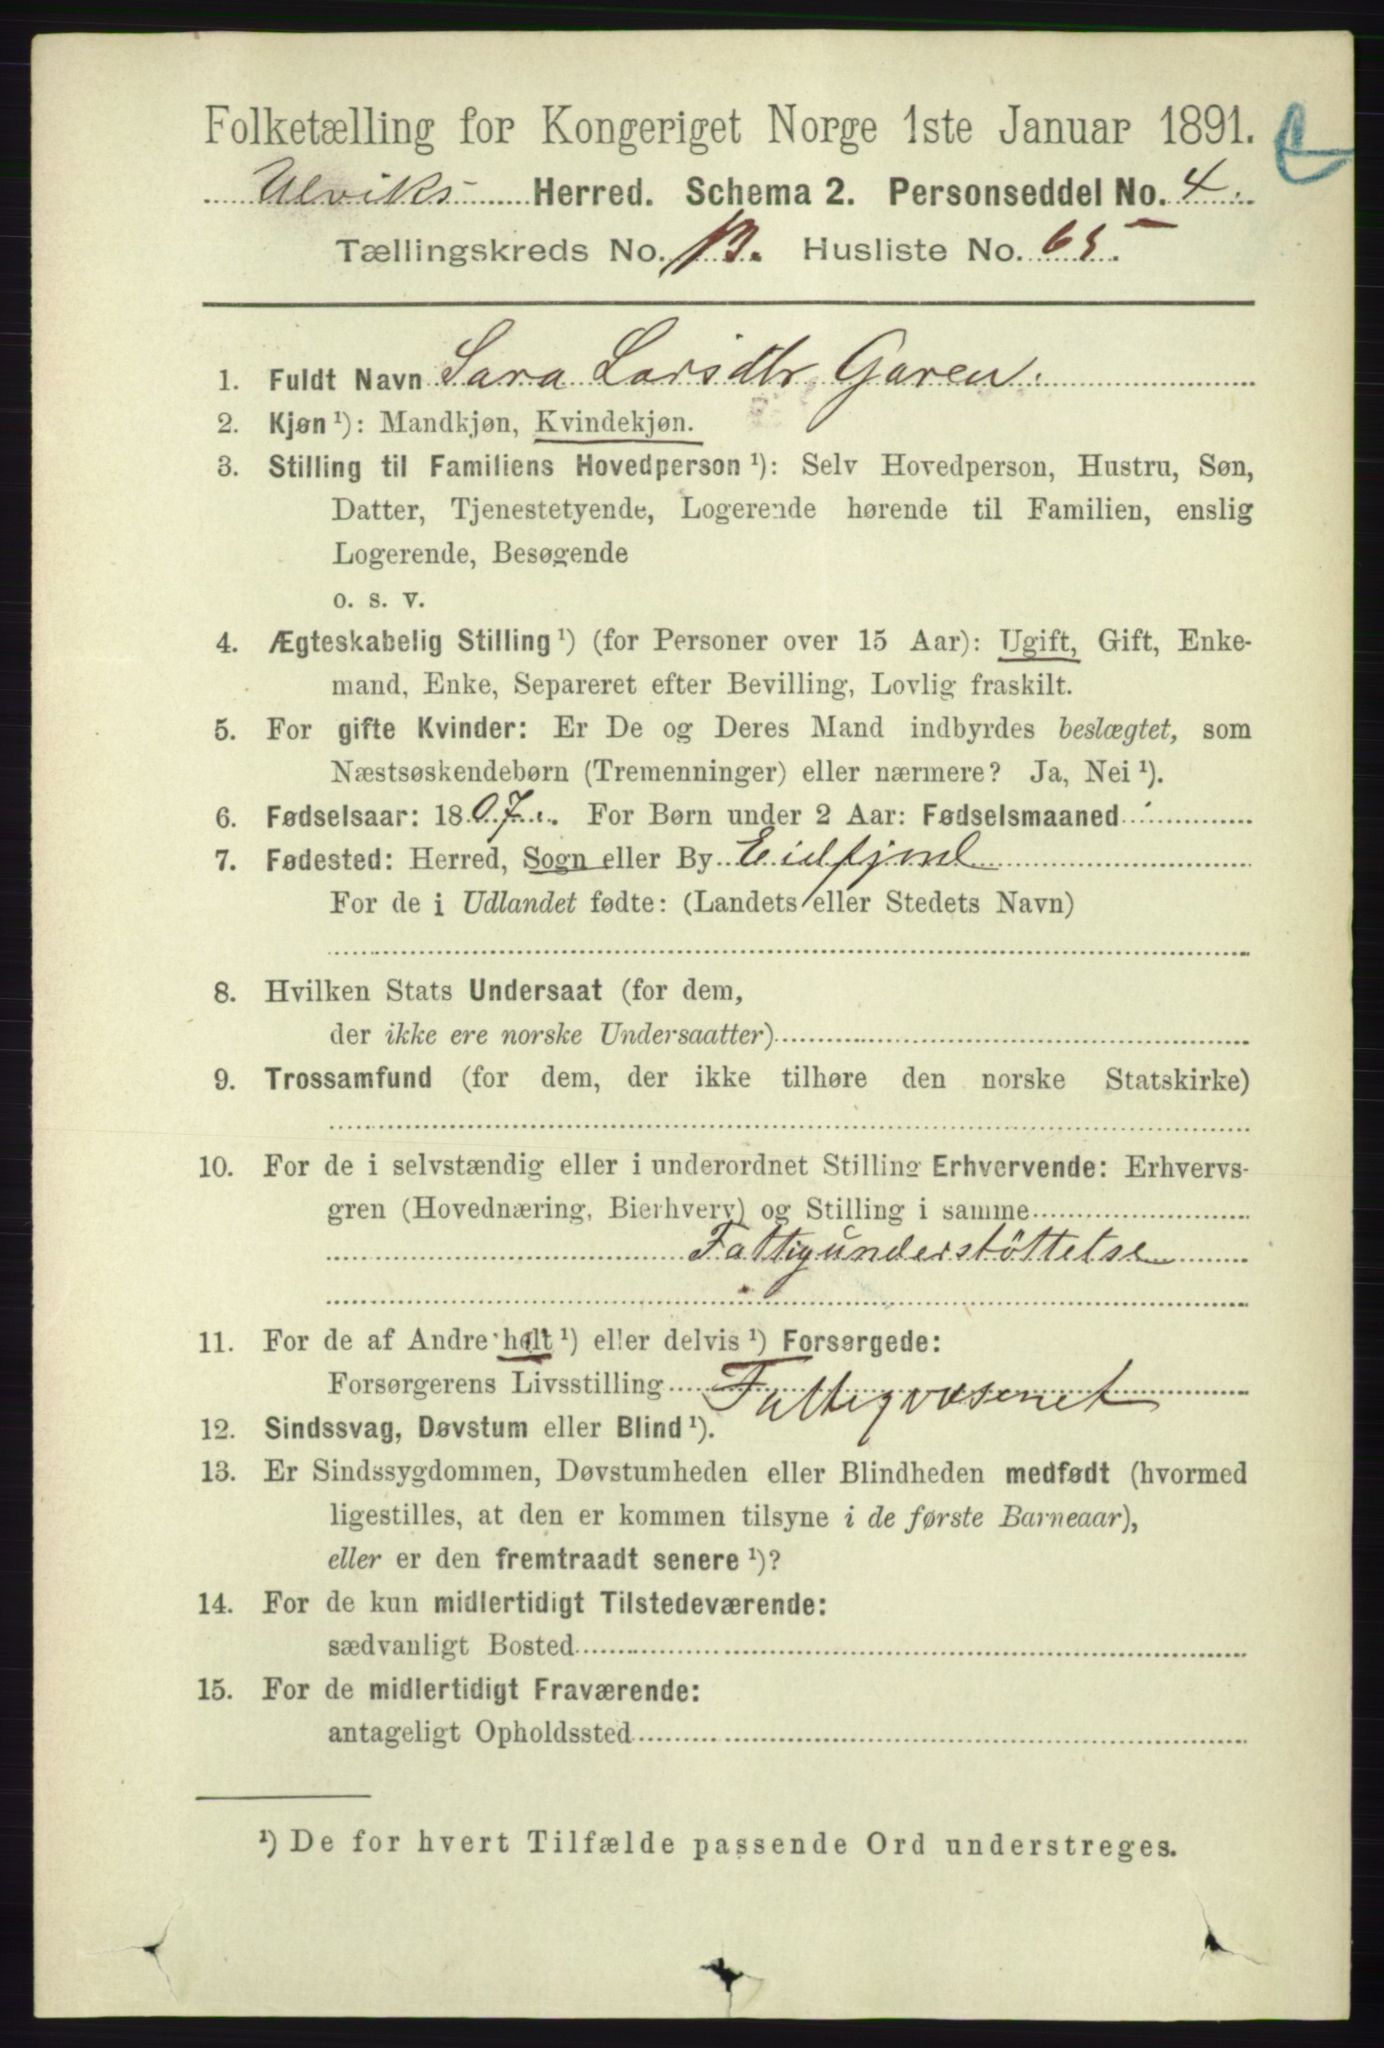 Folketælling for Kongeriget Norge 1ste Januar 1891.
Ulviks Herred. Schema 2. Personseddel No. 4.
Tællingskreds No. 13. Husliste No. 65.
1. Fuldt Navn Sara Larsdtr Garen.
2. Kjøn ¹): Mandkjøn, Kvindekjøn.
3. Stilling til Familiens Hovedperson ¹): Selv Hovedperson, Hustru, Søn,
Datter, Tjenestetyende, Logerende hørende til Familien, enslig
Logerende, Besøgende
o. s. v.
4. Ægteskabelig Stilling ¹) (for Personer over 15 Aar): Ugift, Gift, Enke-
mand, Enke, Separeret efter Bevilling, Lovlig fraskilt.
5. For gifte Kvinder: Er De og Deres Mand indbyrdes beslægtet, som
Næstsøskendebørn (Tremenninger) eller nærmere? Ja, Nei ¹).
6. Fødselsaar: 1807. For Børn under 2 Aar: Fødselsmaaned
7. Fødested: Herred, Sogn eller By Eidfjord
For de i Udlandet fødte: (Landets eller Stedets Navn)
8. Hvilken Stats Undersaat (for dem,
der ikke ere norske Undersaatter)
9. Trossamfund (for dem, der ikke tilhøre den norske Statskirke)
10. For de i selvstændig eller i underordnet Stilling Erhvervende: Erhvervs-
gren (Hovednæring, Bierhverv) og Stilling i samme
Fattigunderstöttelse
11. For de af Andre helt ¹) eller delvis ¹) Forsørgede:
Forsørgerens Livsstilling Fattigvæsenet
12. Sindssvag, Døvstum eller Blind ¹).
13. Er Sindssygdommen, Døvstumheden eller Blindheden medfødt (hvormed
ligestilles, at den er kommen tilsyne i de første Barneaar),
eller er den fremtraadt senere ¹)?
14. For de kun midlertidigt Tilstedeværende:
sædvanligt Bosted
15. For de midlertidigt Fraværende:
antageligt Opholdssted
¹) De for hvert Tilfælde passende Ord understreges.